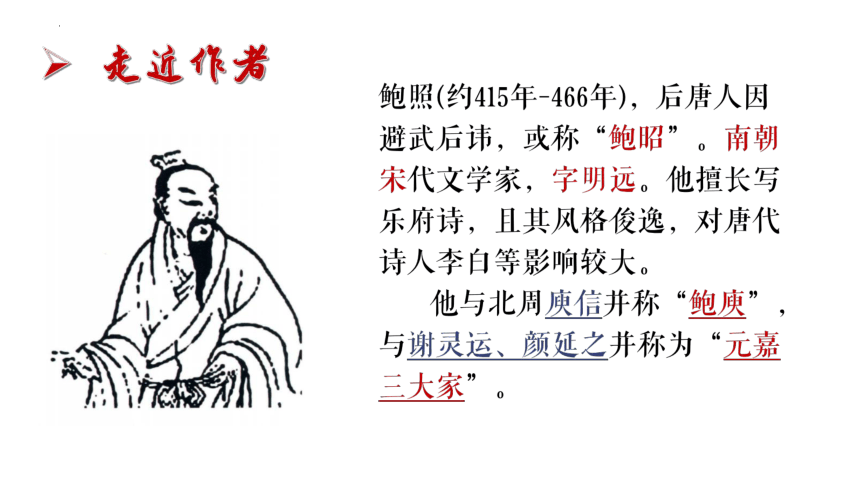 走近作者
鲍照(约415年-466年)，后唐人因
避武后讳，或称“鲍昭”。南朝
宋代文学家，字明远。他擅长写
乐府诗，且其风格俊逸，对唐代
诗人李白等影响较大。
他与北周庾信并称“鲍庾”，
与谢灵运、颜延之并称为“元嘉
三大家”。